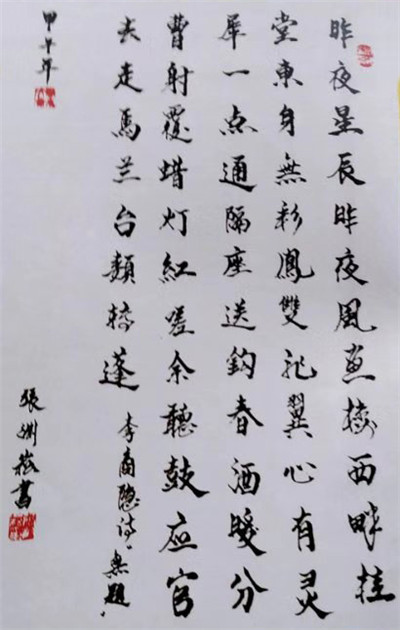 昨夜星辰昨夜風画楼西畔桂
堂東身無彩鳳雙飛翼心有灵
犀一点通隔座送鈎春酒暖分
曹射覆蜡灯紅嗟余聽鼓应官
去走馬兰台類轉蓬 李商隐诗，無題，
甲午年
張 崧書